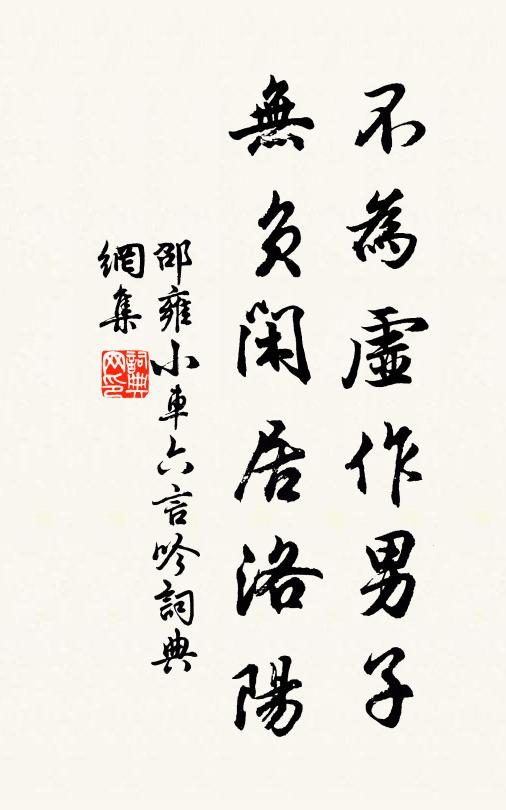 不為虛作男子
無負閑居洛陽
邵雍小車六言吟詞典
網集
詞典网印